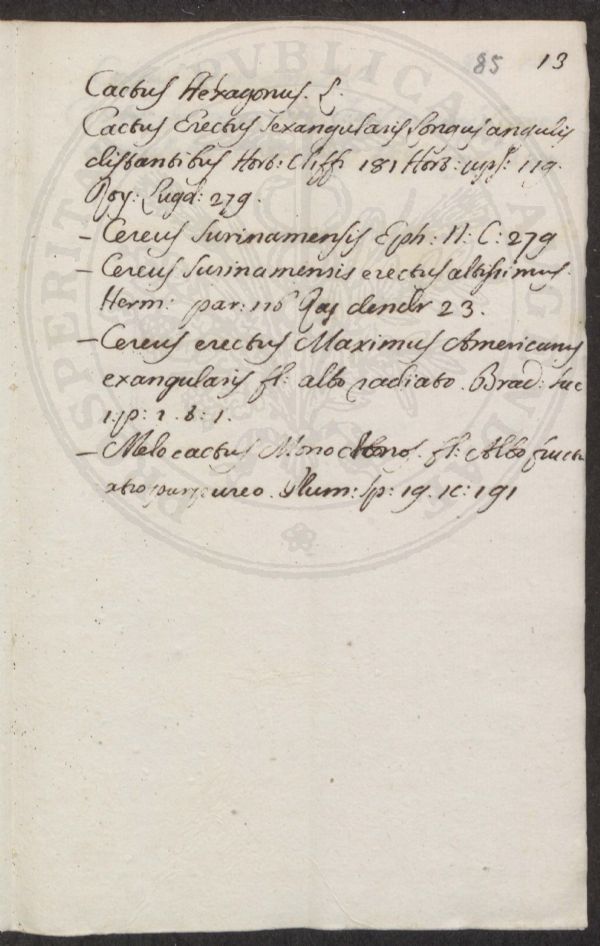 85 13
Cactus Hexagonus. L.
Cactus Erectus sexangularis longus angulis
distantibus Hort: Cliff: 181 Hort: ups: 119.
Roy: Lugd: 279.
– Cereus Surinamensis Eph: N: C: 279
– Cereus Surinamensis erectus altissimus
Herm: par: 116 Raj dendr 23.
– Cereus erectus Maximus Americanus
exangularis fl: albo radiato. Brad: suc
1: p: 1. 8: 1.
– Melocactus Monoclonos. fl: Albo fructu
atro purpureo. Plum: sp: 19. ic: 191